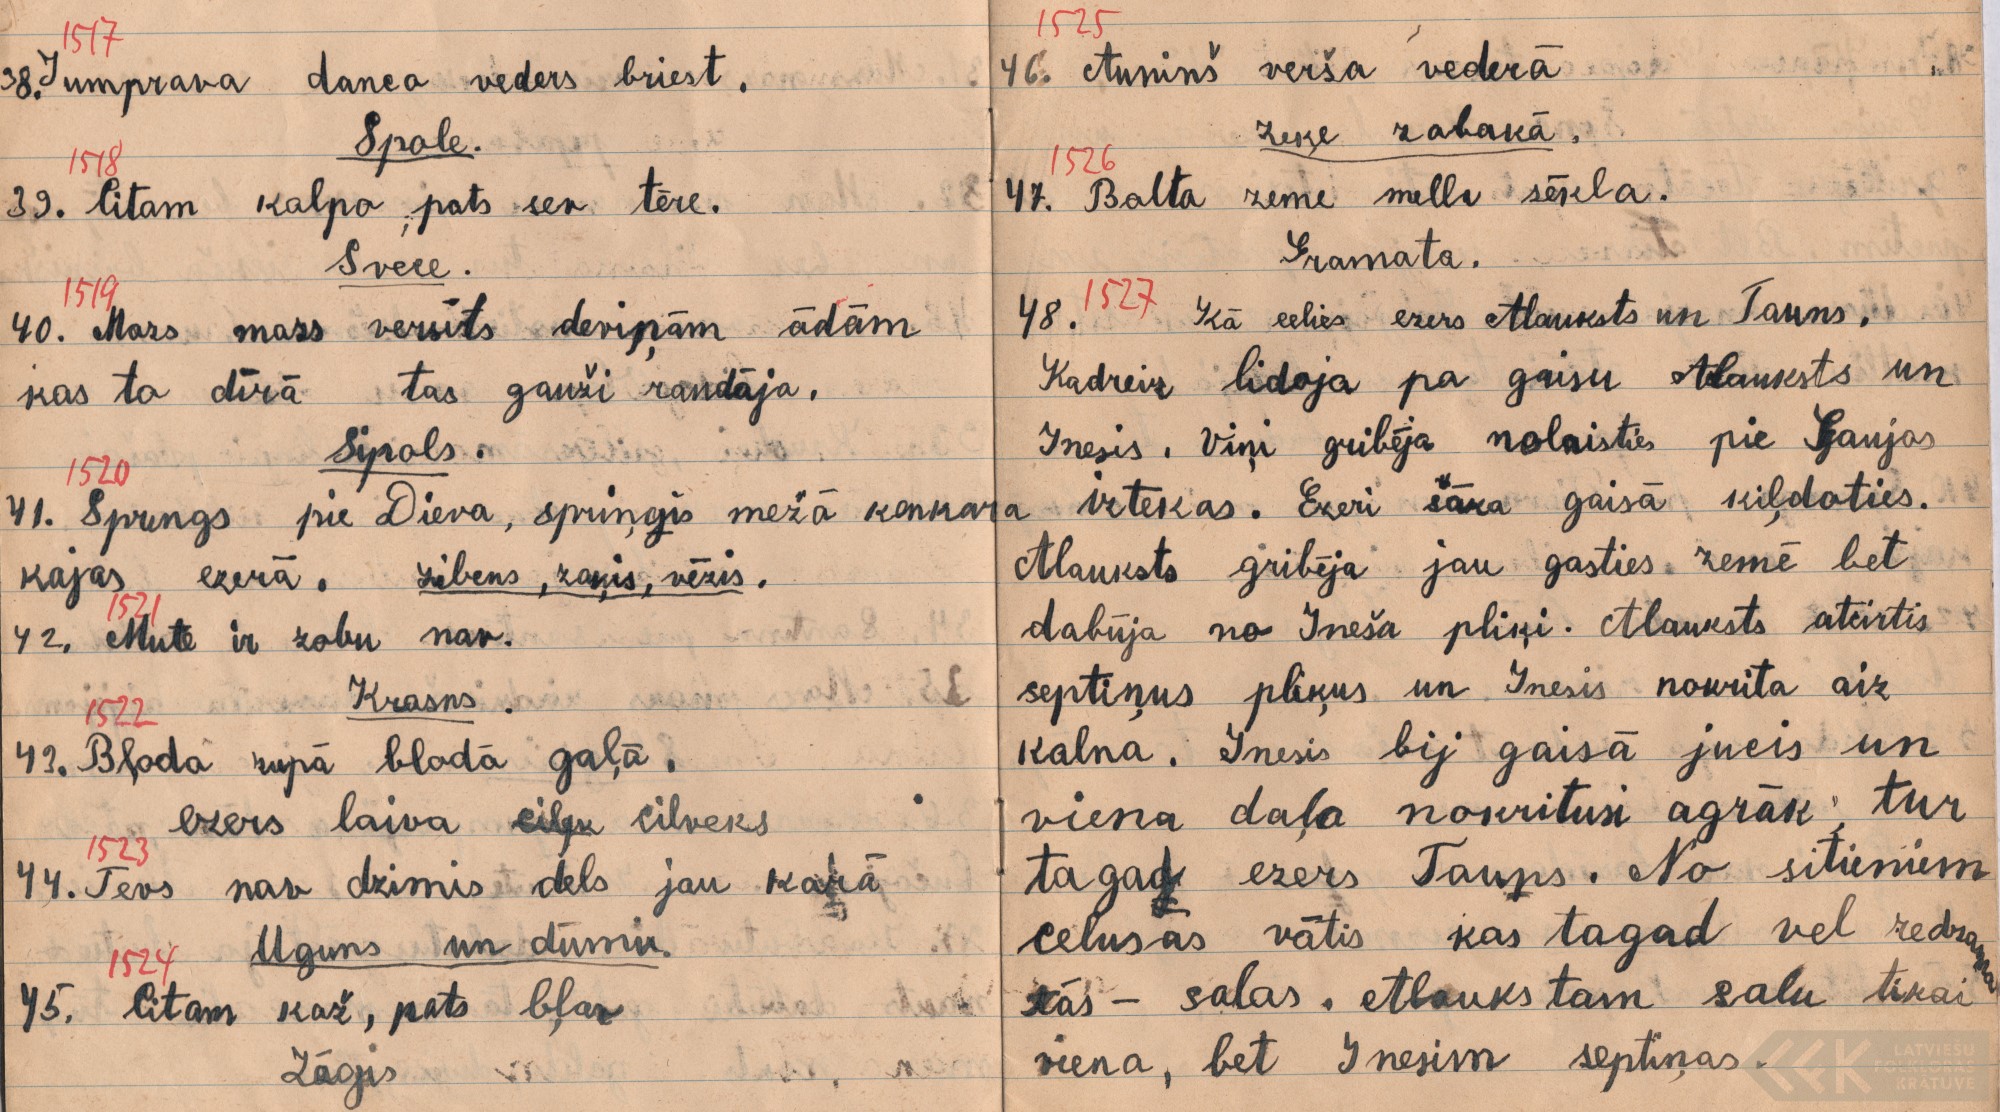 1517
38. Jumprava danco veders briest.
Spole.
1518
39. Citam kalpo, pats sev tēre.
Svece.
1519
40. Mazs mazs versīts deviņām ādām
kas to dīrā tas gauži raudāja.
Sipols.
1520
41. Sprungs pie Dieva, spriņģis mežā konkara
kajas ezerā. zibens, zaķis, vēzis.
1521
42. Mute ir zobu nav.
Krasns.
1522
43. Bļoda zupā blodā gaļā.
ezers laiva cilveks
1523
44. Tevs nav dzimis dels jau karā
Uguns un dūmu.
1524
45. Citam kaž, pats bļav
Zāģis
1525
46. Auninš verša vederā
zeķe zabakā.
1526
47. Balta zeme mella sēkla.
Gramata.
48. 1527 Kā eelies ezers Alauksts un Tauns.
Kadreiz lidoja pa gaisu Alauksts un
Inesis. Viņi gribēja nolaisties pie Gaujas
iztekas. Ezeri šāka gaisā ķiļdoties.
Alauksts gribēja jau gasties zemē bet
dabūja no Ineša pliķi. Alauksts atcirtis
septiņus pliķus un Inesis nokrita aiz
kalna. Inesis bij gaisā jucis un
viena daļa nokritusi agrāk, tur
tagad ezers Taups. No sitieniem
celušās vātis kas tagad vel redzamas
tās - salas. Alaukstam salu tikai
viena, bet Inesim septiņas.
LATVIEŠU
FOLKLORAS
KRĀTUVE